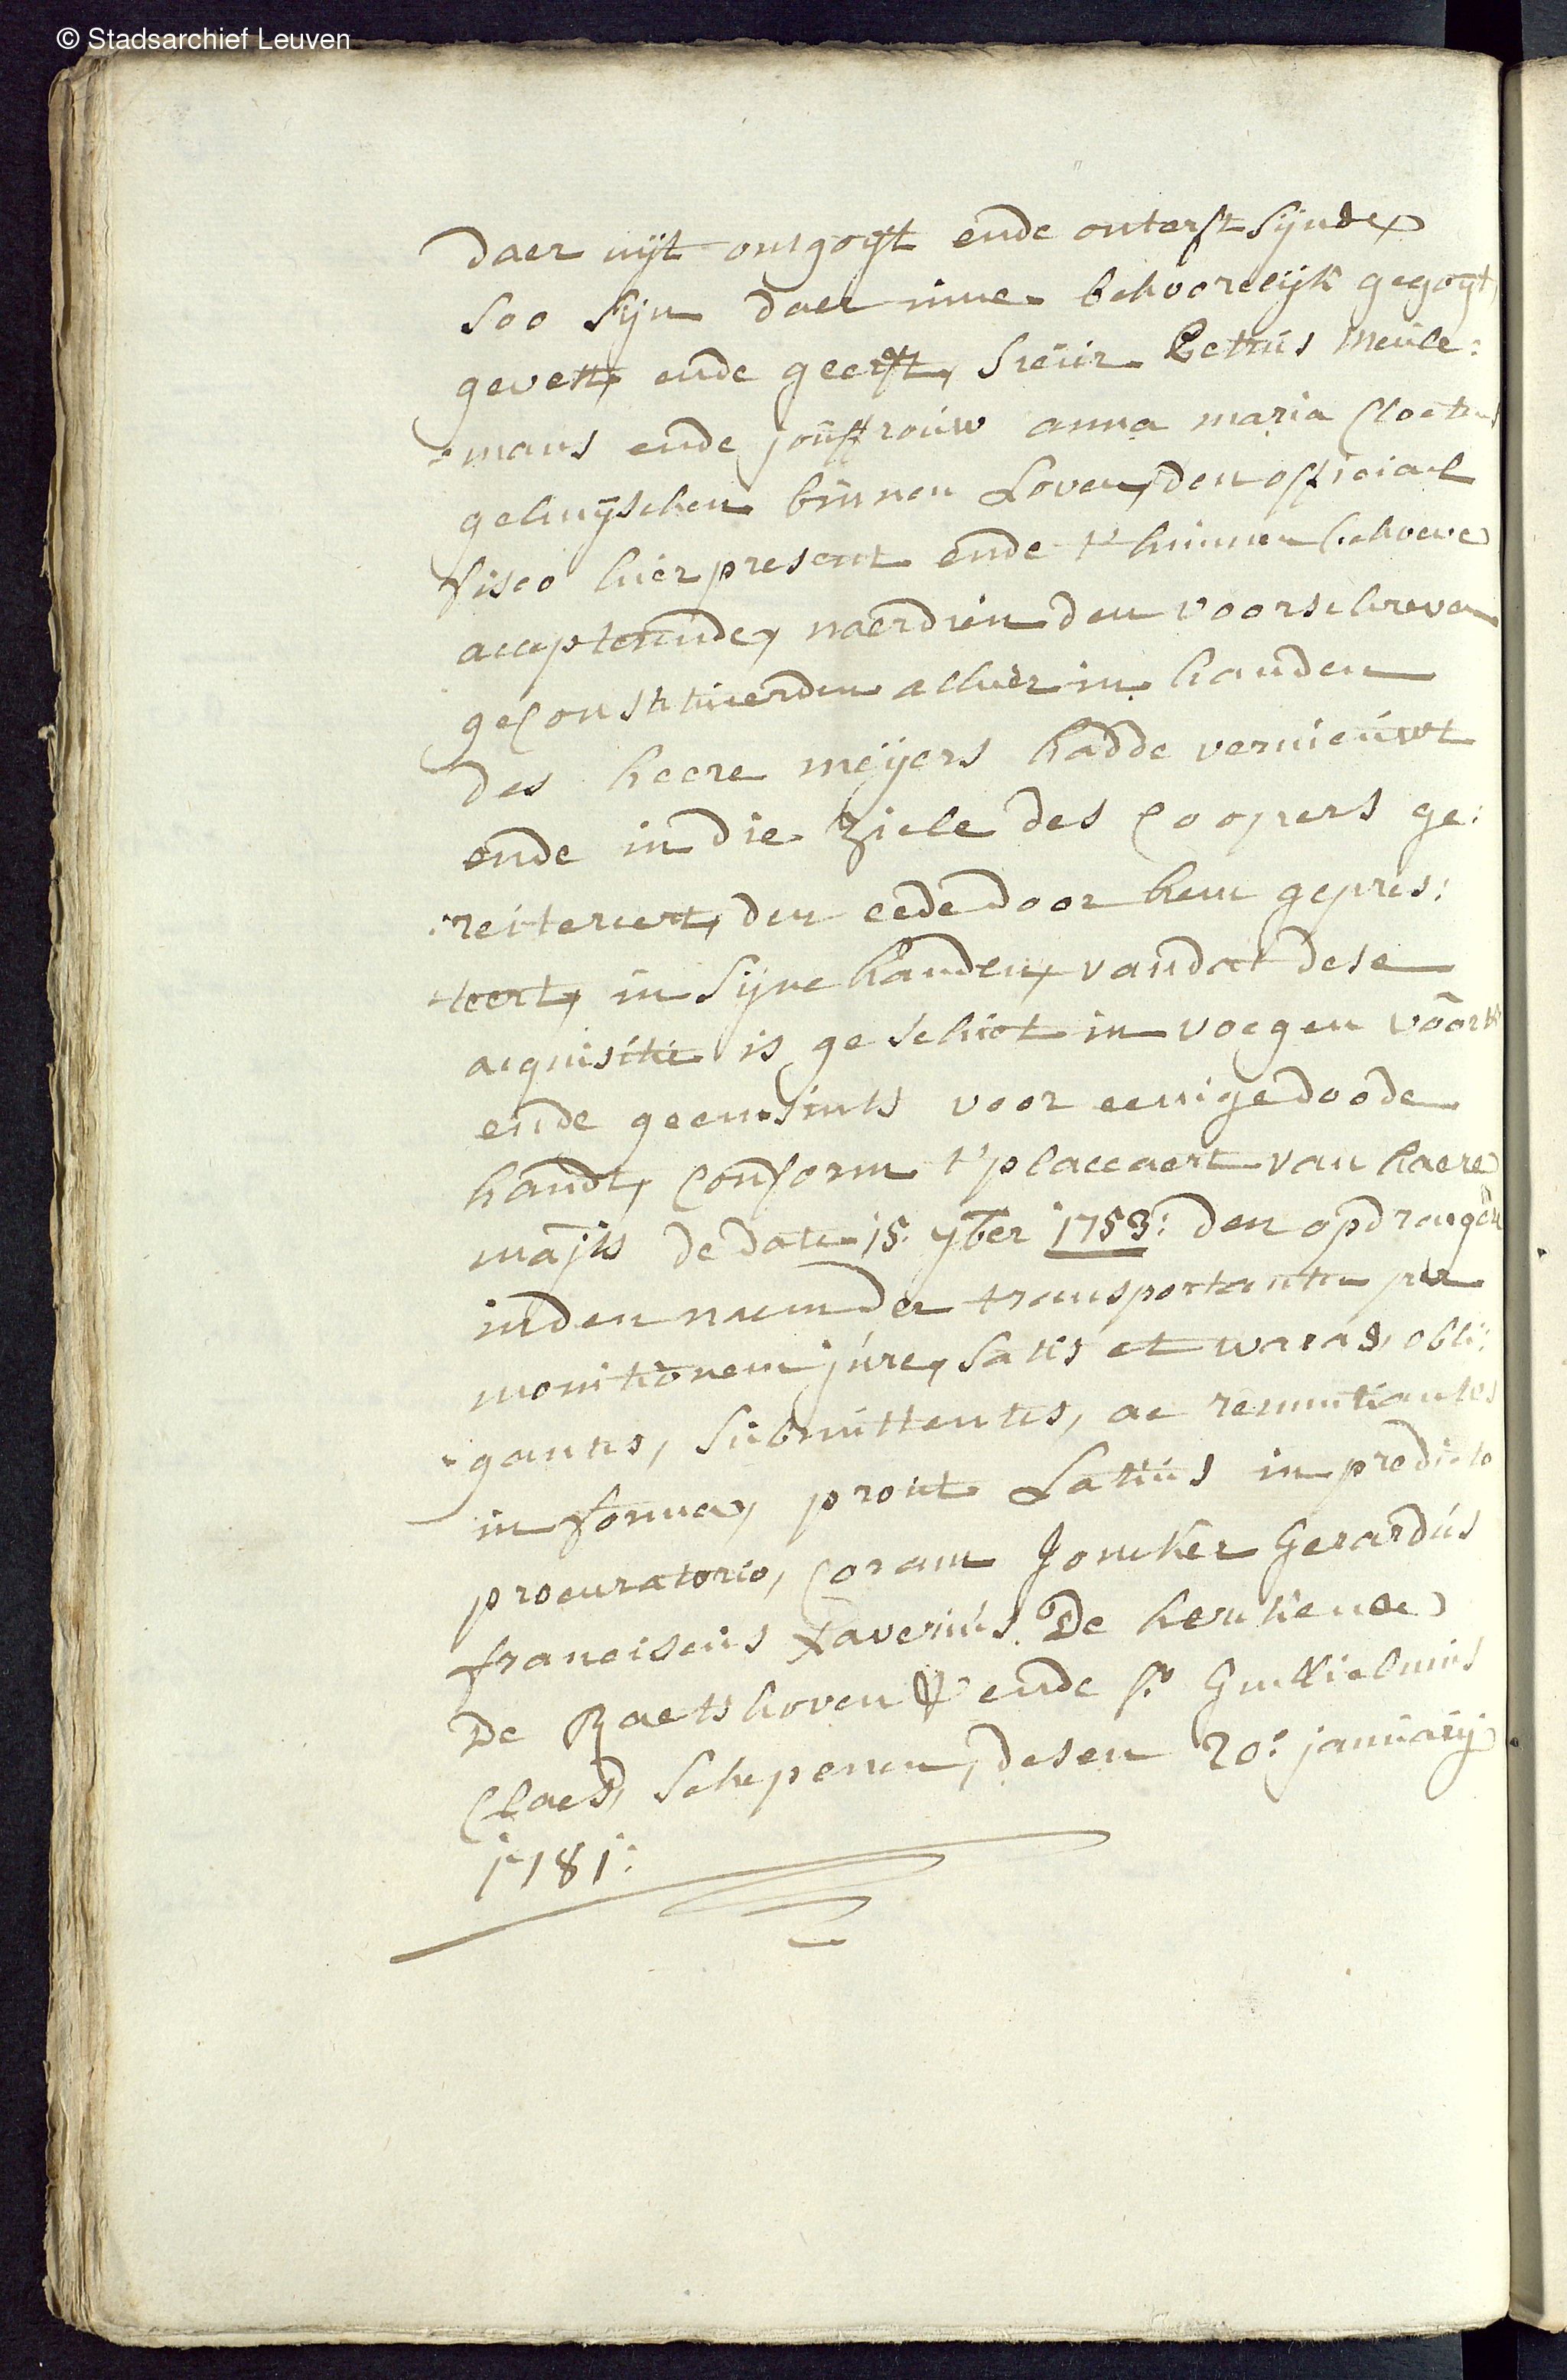 © Stadsarchief Leuven
daer uijt ontgoijt ende onterft sijnde,
soo sijn daer inne behoorelijk gegoijt,
gevest, ende geerft, sieur Petrus Meule:
:mans ende jouffrouw anna maria Cloetens
gehuijschen binnen Loven, den officiael
fisco hier present ende t' hunnen behoeve
accepterende, naerdien den voorschreven
geconstitueerden alhier in handen
des heere meijers hadde vernieuwt
ende in die ziele des coopers ge:
:reitereert, den eede door hem gepres:
:teert, in sijne handen, van dat dese
acquisitie is geschiet in voegen voors
ende geensints voor eenige doode
handt, conform t' placcaert van haere
majts de dato 15: 7ber 1753: den opdragen
in den naem der transportanten per
monitionem jure, satis et waras, obli:
:gantes, submittentes, ac renuntiantes
in forma, prout Latius in predicto
procuratorio, coram Joncker Gerardus
franciscus Xaverius De herckenrode
De Raetshoven & ende sr Guillielmus
Claes, schepenen, desen 20: januarij
1781: